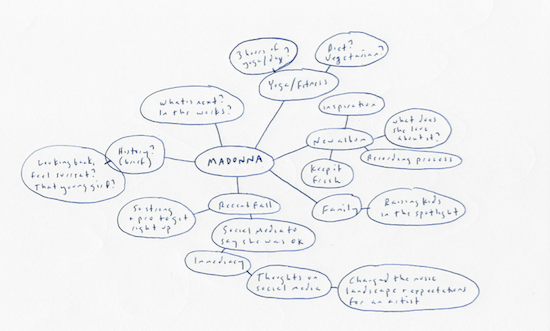 3 hours of
yoga/day?
Diet?
Vegetarian?
Yoga/Fitness
What's next?
In the works?
inspiration
what does
she love
about it?
New album
Recording process
Keep it
fresh
MADONNA
History?
(brief)
Looking back,
feel surreal?
That young girl?
Family
Raising Kids
in the spotlight
Recent fall
So strong
+ pro to get
right up
Social Media to
say she was OK
Immediacy
Thoughts on
social media
Changed the music
landscape + expectations
for an artist